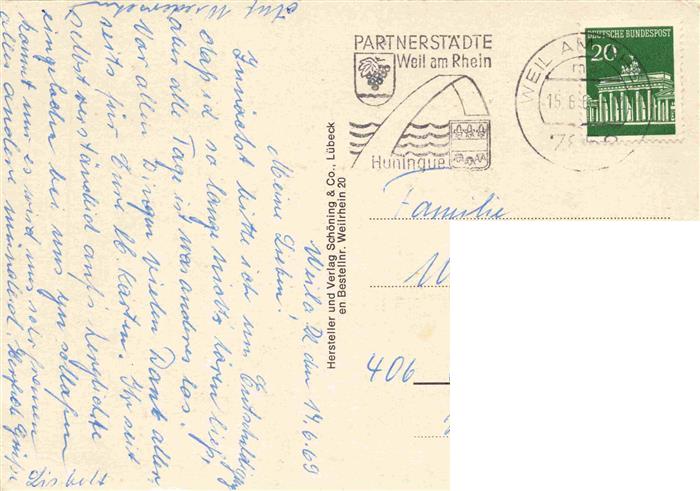 Weil a. R. den 14.6.69
Meine Lieben!
Zunächst bitte ich um Entschuldigung
daß ich so lange nichts hören ließ,
aber alle Tage ist was anderes los.
Vor allen Dingen vielen Dank aller-
seits für Eure lb. Karten. Ihr seid
selbstverständlich aufs herzlichste
eingeladen bei uns zu
kommt nur es wird uns sehr freuen
alles andere mündlich Herzlich Grüße
Auf Wiedersehen
PARTNERSTÄDTE
Weil am Rhein
Huningue
WEIL AM
15.6.6
DEUTSCHE BUNDESPOST
20
Hersteller und Verlag Schöning & Co., Lübeck
en Bestellnr. Weilrhein 20
Familie
W
406